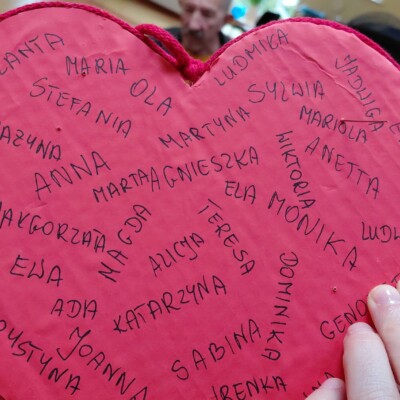 LANTA
MARIA
STEFANIA
OLA
LUDMIKA
SYLWIA
JADWIGA
MARTYNA
MARIOLA
ANETTA
AŻYNA
ANNA
MARTA
AGNIESZKA
WIKTORIA
ELA
MONIKA
MAŁGORZATA
MAGDA
TERESA
LUDW
ALICJA
EWA
ADA
KATARZYNA
DOMINIKA
GENO
JUSTYNA
JOANNA
SABINA
IRENKA